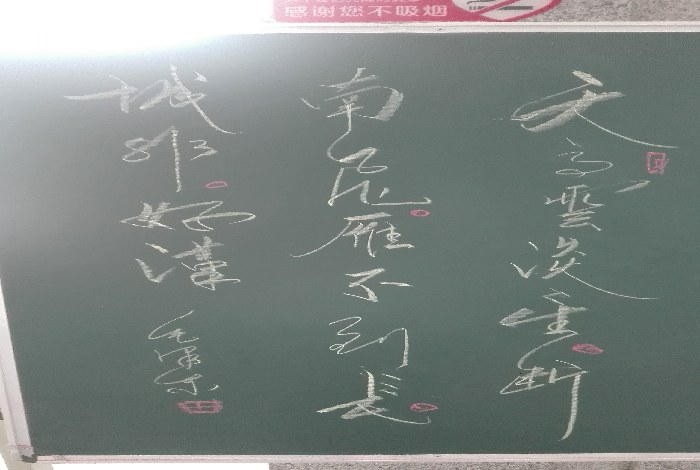 感谢您不吸烟
天高雲淡望断
南飞雁不到長
城非好漢
毛泽东